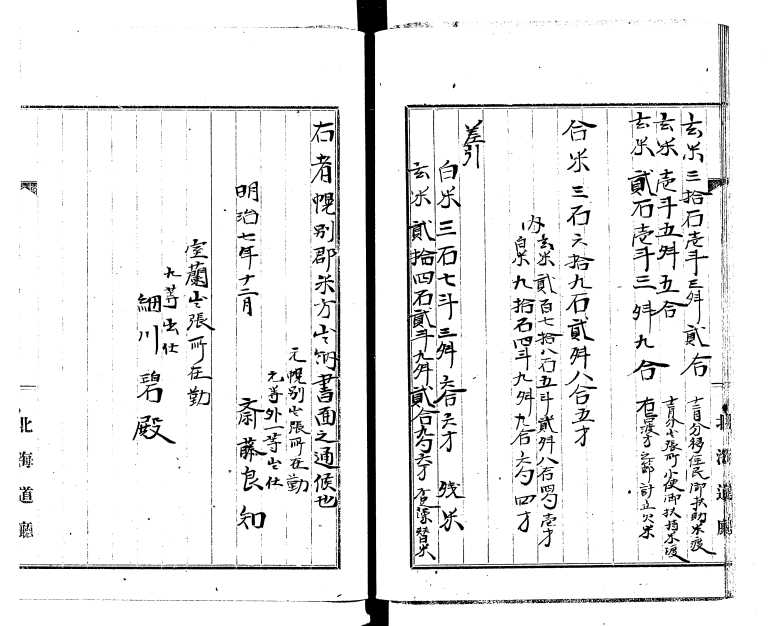 玄米三拾石壱斗三舛貳合 十二月分移住民御扶助米渡
玄米壱斗五舛五合 十二月分小使御扶持米渡
玄米貳石壱斗三舛九合 欠米
合米三石六拾九石貳舛八合五才
内玄米貳百七拾八石五斗貳舛八合四勺壱才
白米九拾石四斗九舛九合六勺四才
差引
白米三石七斗三舛六合六才 残米
玄米貳拾四石貳斗九舛貳合九勺六才
北海道廳
右者幌別郡米方出納書面之通候也
元幌別出張所在勤
元等外一等出仕
明治七年十二月 斎藤良知
室蘭出張所在勤
九等出仕
細川碧殿
北海道廳